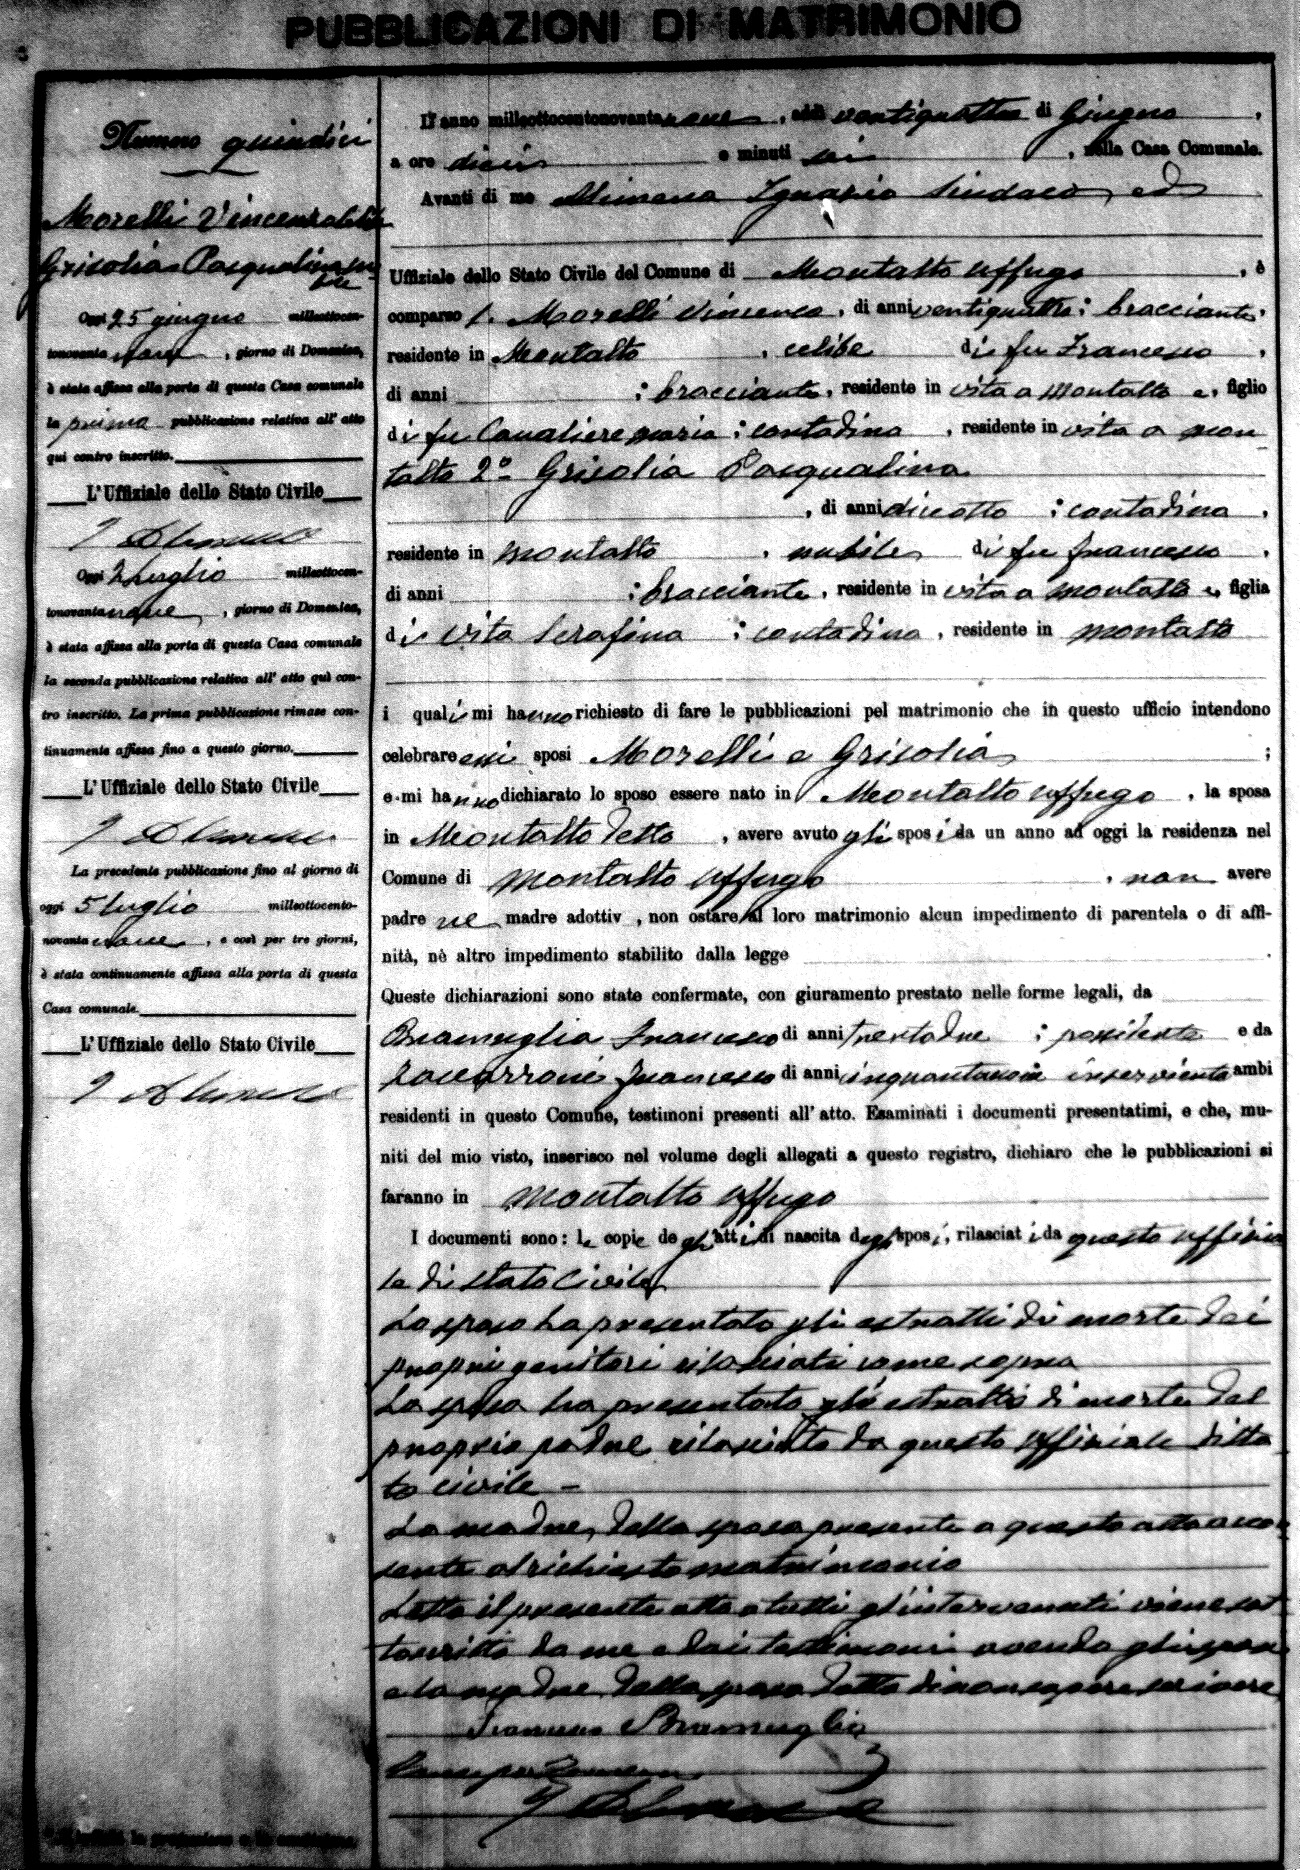 PUBBLICAZIONI DI MATRIMONIO
Numero quindici
Morelli Vincenzo
Grisolia Pasqualina
Oggi 25 giugno millesottocen-
tonovantanove, giorno di Domenica,
è stata affissa alla porta di questa Casa comunale
la prima pubblicazione relativa all' atto
qui contro inscritto.
L'Uffiziale dello Stato Civile
Oggi 2 luglio millesottocen-
tonovantanove, giorno di Domenica,
è stata affissa alla porta di questa Casa comunale
la seconda pubblicazione relativa all' atto quì con-
tro inscritto. La prima pubblicazione rimase con-
tinuamente affissa fino a questo giorno.
L'Uffiziale dello Stato Civile
La precedente pubblicazione fino al giorno di
oggi 5 luglio millesottocento-
novantanove, e così per tre giorni,
è stata continuamente affissa alla porta di questa
Casa comunale.
L'Uffiziale dello Stato Civile
L' anno millesottocentonovantanove, addì ventiquattro di Giugno,
a ore dieci e minuti sei, nella Casa Comunale.
Avanti di me Ignazio Sindaco ed
Uffiziale dello Stato Civile del Comune di Montalto Uffugo, è
comparso 1. Morelli Vincenzo, di anni ventiquattro; bracciante,
residente in Montalto, celibe di fu Francesco,
di anni ; bracciante, residente in vita a Montalto e, figlio
di fu Cavaliere Maria; contadina, residente in vita a Mon
talto 2º Grisolia Pasqualina
, di anni diciotto; contadina,
residente in Montalto, nubile di fu Francesco,
di anni ; bracciante, residente in vita a Montalto e, figlia
di Vita Serafina; contadina, residente in Montalto
i quali mi hanno richiesto di fare le pubblicazioni pel matrimonio che in questo ufficio intendono
celebrare essi sposi Morelli e Grisolia;
e mi hanno dichiarato lo sposo essere nato in Montalto Uffugo, la sposa
in Montalto detto, avere avuto gli sposi da un anno ad oggi la residenza nel
Comune di Montalto Uffugo, non avere
padre ne madre adottiv , non ostare al loro matrimonio alcun impedimento di parentela o di affi-
nità, nè altro impedimento stabilito dalla legge
Queste dichiarazioni sono state confermate, con giuramento prestato nelle forme legali, da
Bramuglia Francesco di anni trentadue; possidente e da
Francesco di anni inserviente ambi
residenti in questo Comune, testimoni presenti all' atto. Esaminati i documenti presentatimi, e che, mu-
niti del mio visto, inserisco nel volume degli allegati a questo registro, dichiaro che le pubblicazioni si
faranno in Montalto Uffugo
I documenti sono: le copie degli atti di nascita degli sposi, rilasciati da questo uffizia
le di stato Civile
Lo sposo ha presentato gli estratti di morte dei
proprii genitori rilasciati come sopra
La sposa ha presentato gli estratti di morte del
proprio padre rilasciato da questo uffiziale di sta
to civile -
La madre della sposa presente a questo atto accon
sente al richiesto matrimonio
Letto il presente atto a tutti gl'intervenuti viene sot
toscritto da me e dai testimoni avendo gli sposi
e la madre della sposa detto di non sapere scrivere
Francesco Bramuglia